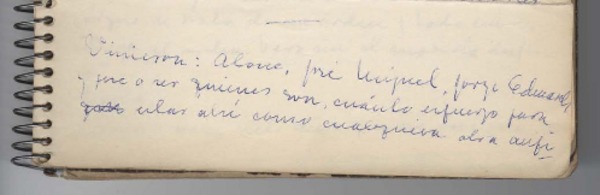 Vinieron: Alone, José Miguel, Jorge Edwards,
y pese a ser quienes son, cuánto esfuerzo para
estar ahí como cualquiera otra anfi-